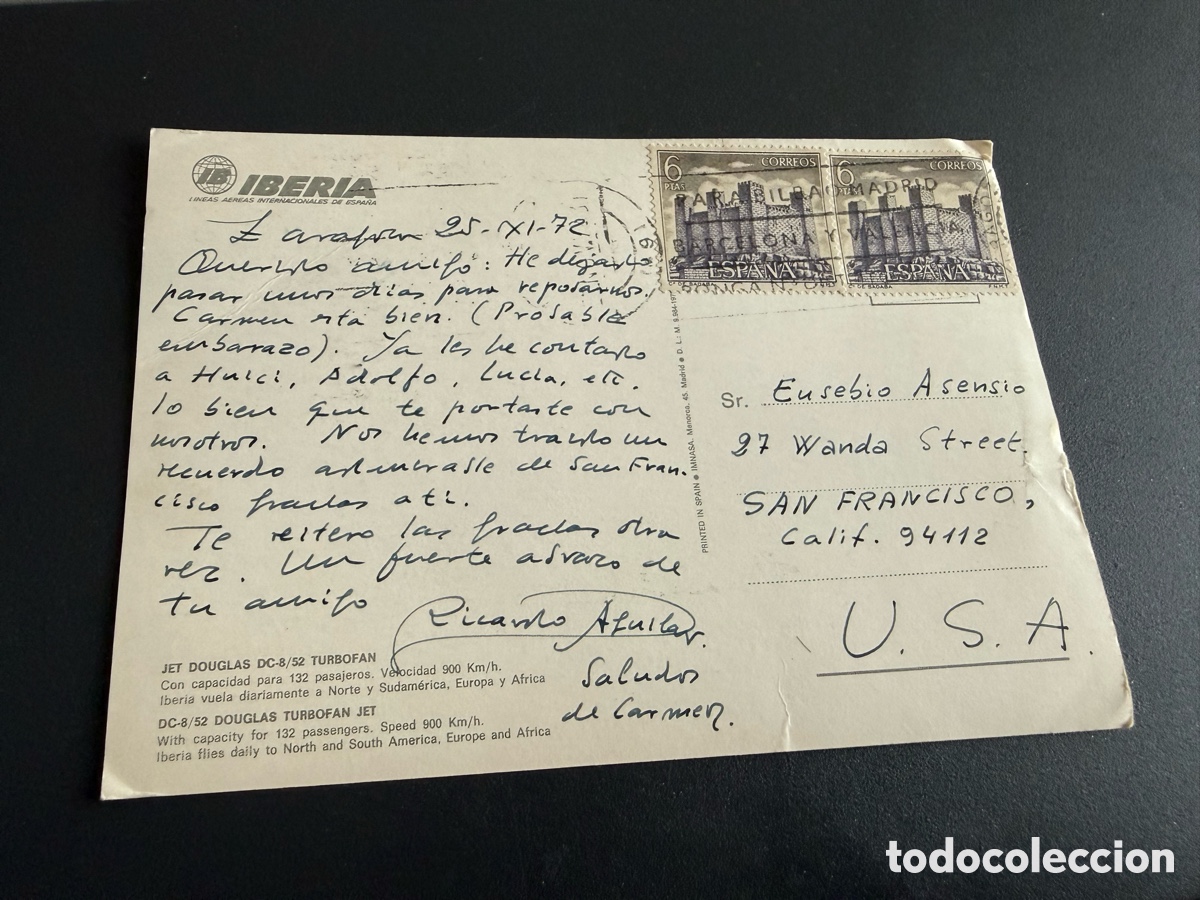 IB IBERIA
LINEAS AEREAS INTERNACIONALES DE ESPAÑA
Zaragoza 25-XI-72
Querido amigo: He dejado
pasar unos días para reposarnos.
Carmen esta bien. (Probable
embarazo). Ya les he contado
a Huici, Adolfo, Lucia, etc.
lo bien que te portaste con
nosotros. Nos hemos traido un
recuerdo de San Fran-
cisco gracias a ti.
Te reitero las gracias otra
vez. Un fuerte abrazo de
tu amigo
Ricardo Aguilar.
Saludos
de Carmen.
JET DOUGLAS DC-8/52 TURBOFAN
Con capacidad para 132 pasajeros. Velocidad 900 Km/h.
Iberia vuela diariamente a Norte y Sudamérica, Europa y Africa
DC-8/52 DOUGLAS TURBOFAN JET
With capacity for 132 passengers. Speed 900 Km/h.
Iberia flies daily to North and South America, Europe and Africa
PRINTED IN SPAIN ● IMNASA. Menorca, 45. Madrid ● D. L.: M.
6 PTAS CORREOS
ESPAÑA
6 CORREOS
ESPAÑA
DE SADABA F.N.M.T.
PARA BILBAO MADRID
BARCELONA Y VALENCIA
PONGA Nº
Sr. Eusebio Asensio
27 Wanda Street.
SAN FRANCISCO,
Calif. 94112
U. S. A.
todocoleccion